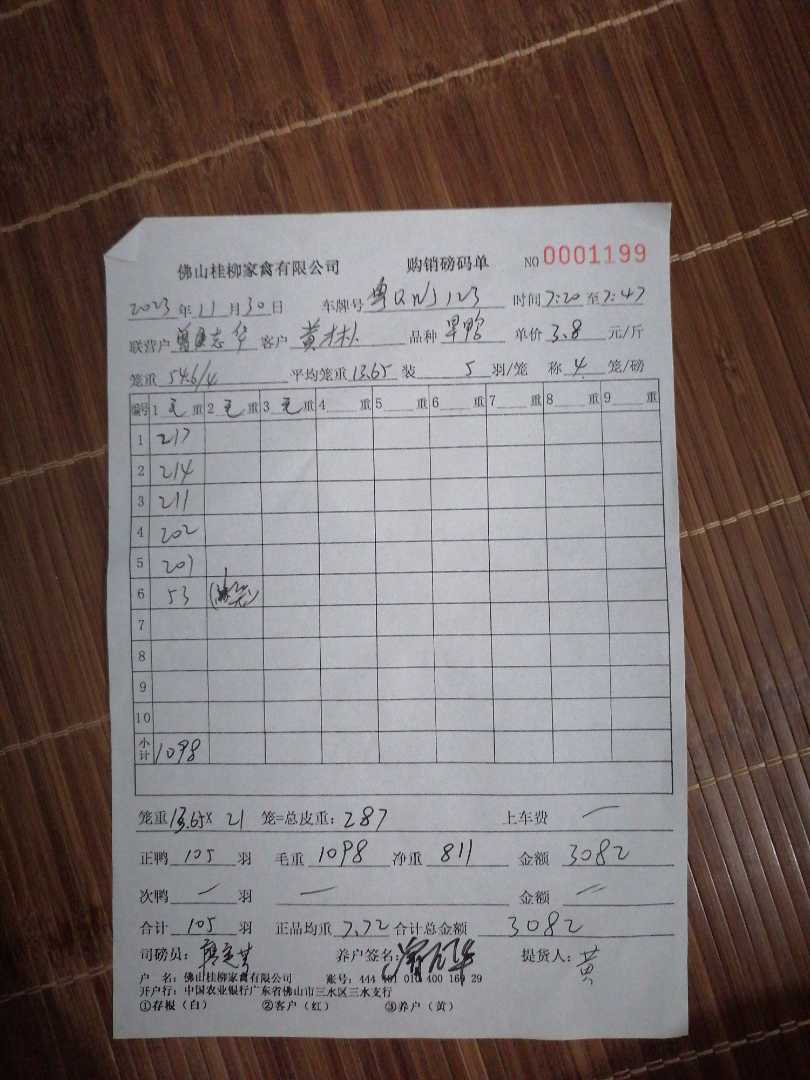 佛山桂柳家禽有限公司 购销磅码单 NO 0001199
2023年11月30日 车牌号 粤 123 时间 7:20至7:47
联营户 志华 客户 黄林 品种 旱鸭 单价 3.8 元/斤
笼重 54.6/4 平均笼重 13.65 装 5 羽/笼 称 4 笼/磅
编号 1 毛 重 2 毛 重 3 毛 重 4 重 5 重 6 重 7 重 8 重 9 重
1 217
2 214
3 211
4 202
5 201
6 53
7
8
9
10
小计 1098
笼重 13.65 × 21 笼=总皮重: 287 上车费 一
正鸭 105 羽 毛重 1098 净重 811 金额 3082
次鸭 一 羽 一 金额 一
合计 105 羽 正品均重 7.72 合计总金额 3082
司磅员: 养户签名: 提货人: 黄
户 名: 佛山桂柳家禽有限公司 账号: 444 010 400 29
开户行: 中国农业银行广东省佛山市三水区三水支行
①存根（白） ②客户（红） ③养户（黄）